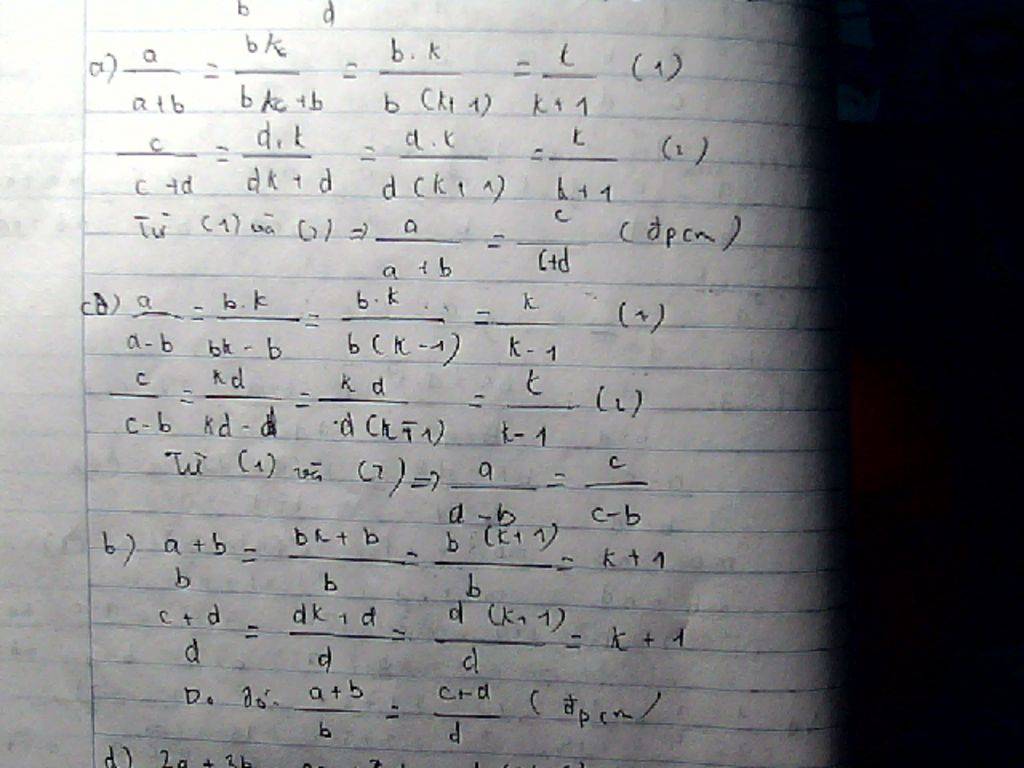 b d
a) a/(a+b) = bk/(bk+b) = b.k/(b(k+1)) = k/(k+1) (1)
c/(c+d) = d.k/(dk+d) = d.k/(d(k+1)) = k/(k+1) (2)
Từ (1) và (2) => a/(a+b) = c/(c+d) (đpcm)
c) a/(a-b) = b.k/(bk-b) = b.k/(b(k-1)) = k/(k-1) (1)
c/(c-b) = kd/(kd-d) = kd/(d(k-1)) = k/(k-1) (2)
Từ (1) và (2) => a/(a-b) = c/(c-b)
b) (a+b)/b = (bk+b)/b = b(k+1)/b = k+1
(c+d)/d = (dk+d)/d = d(k+1)/d = k+1
Do đó: (a+b)/b = (c+d)/d (đpcm)
d) 2a+3b